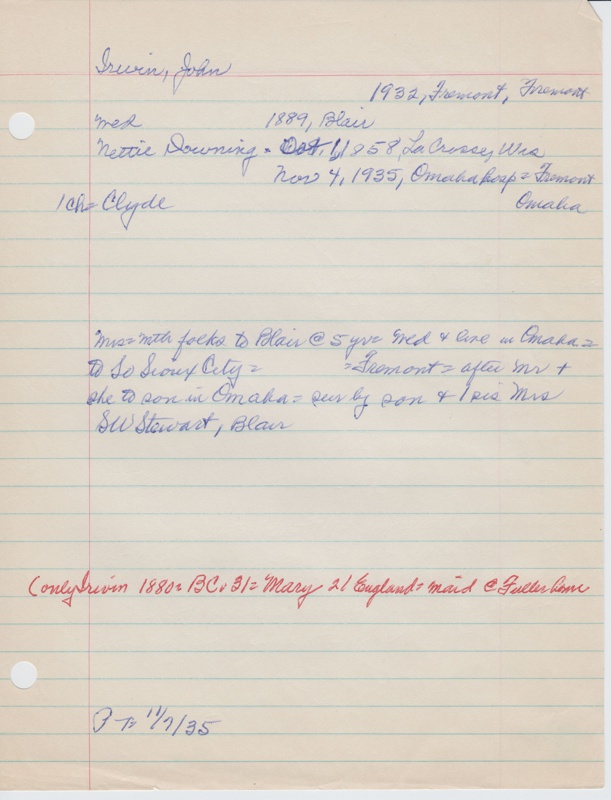 Irwin, John
1932, Fremont, Fremont
wed 1889, Blair
Nettie Downing = Oct. 1, 1858, La Crosse, Wis
Nov 4, 1935, Omaha hosp = Fremont
1 ch = Clyde Omaha
Mrs = with folks to Blair @ 5 yr = wed & live in Omaha =
to So Sioux City = = Fremont = after mr +
she to son in Omaha = sur by son & 1 sis Mrs
SW Stewart, Blair
(only Irwin 1880 = BC 31 = Mary 21 England = maid @ Fuller home
P T = 11/7/35